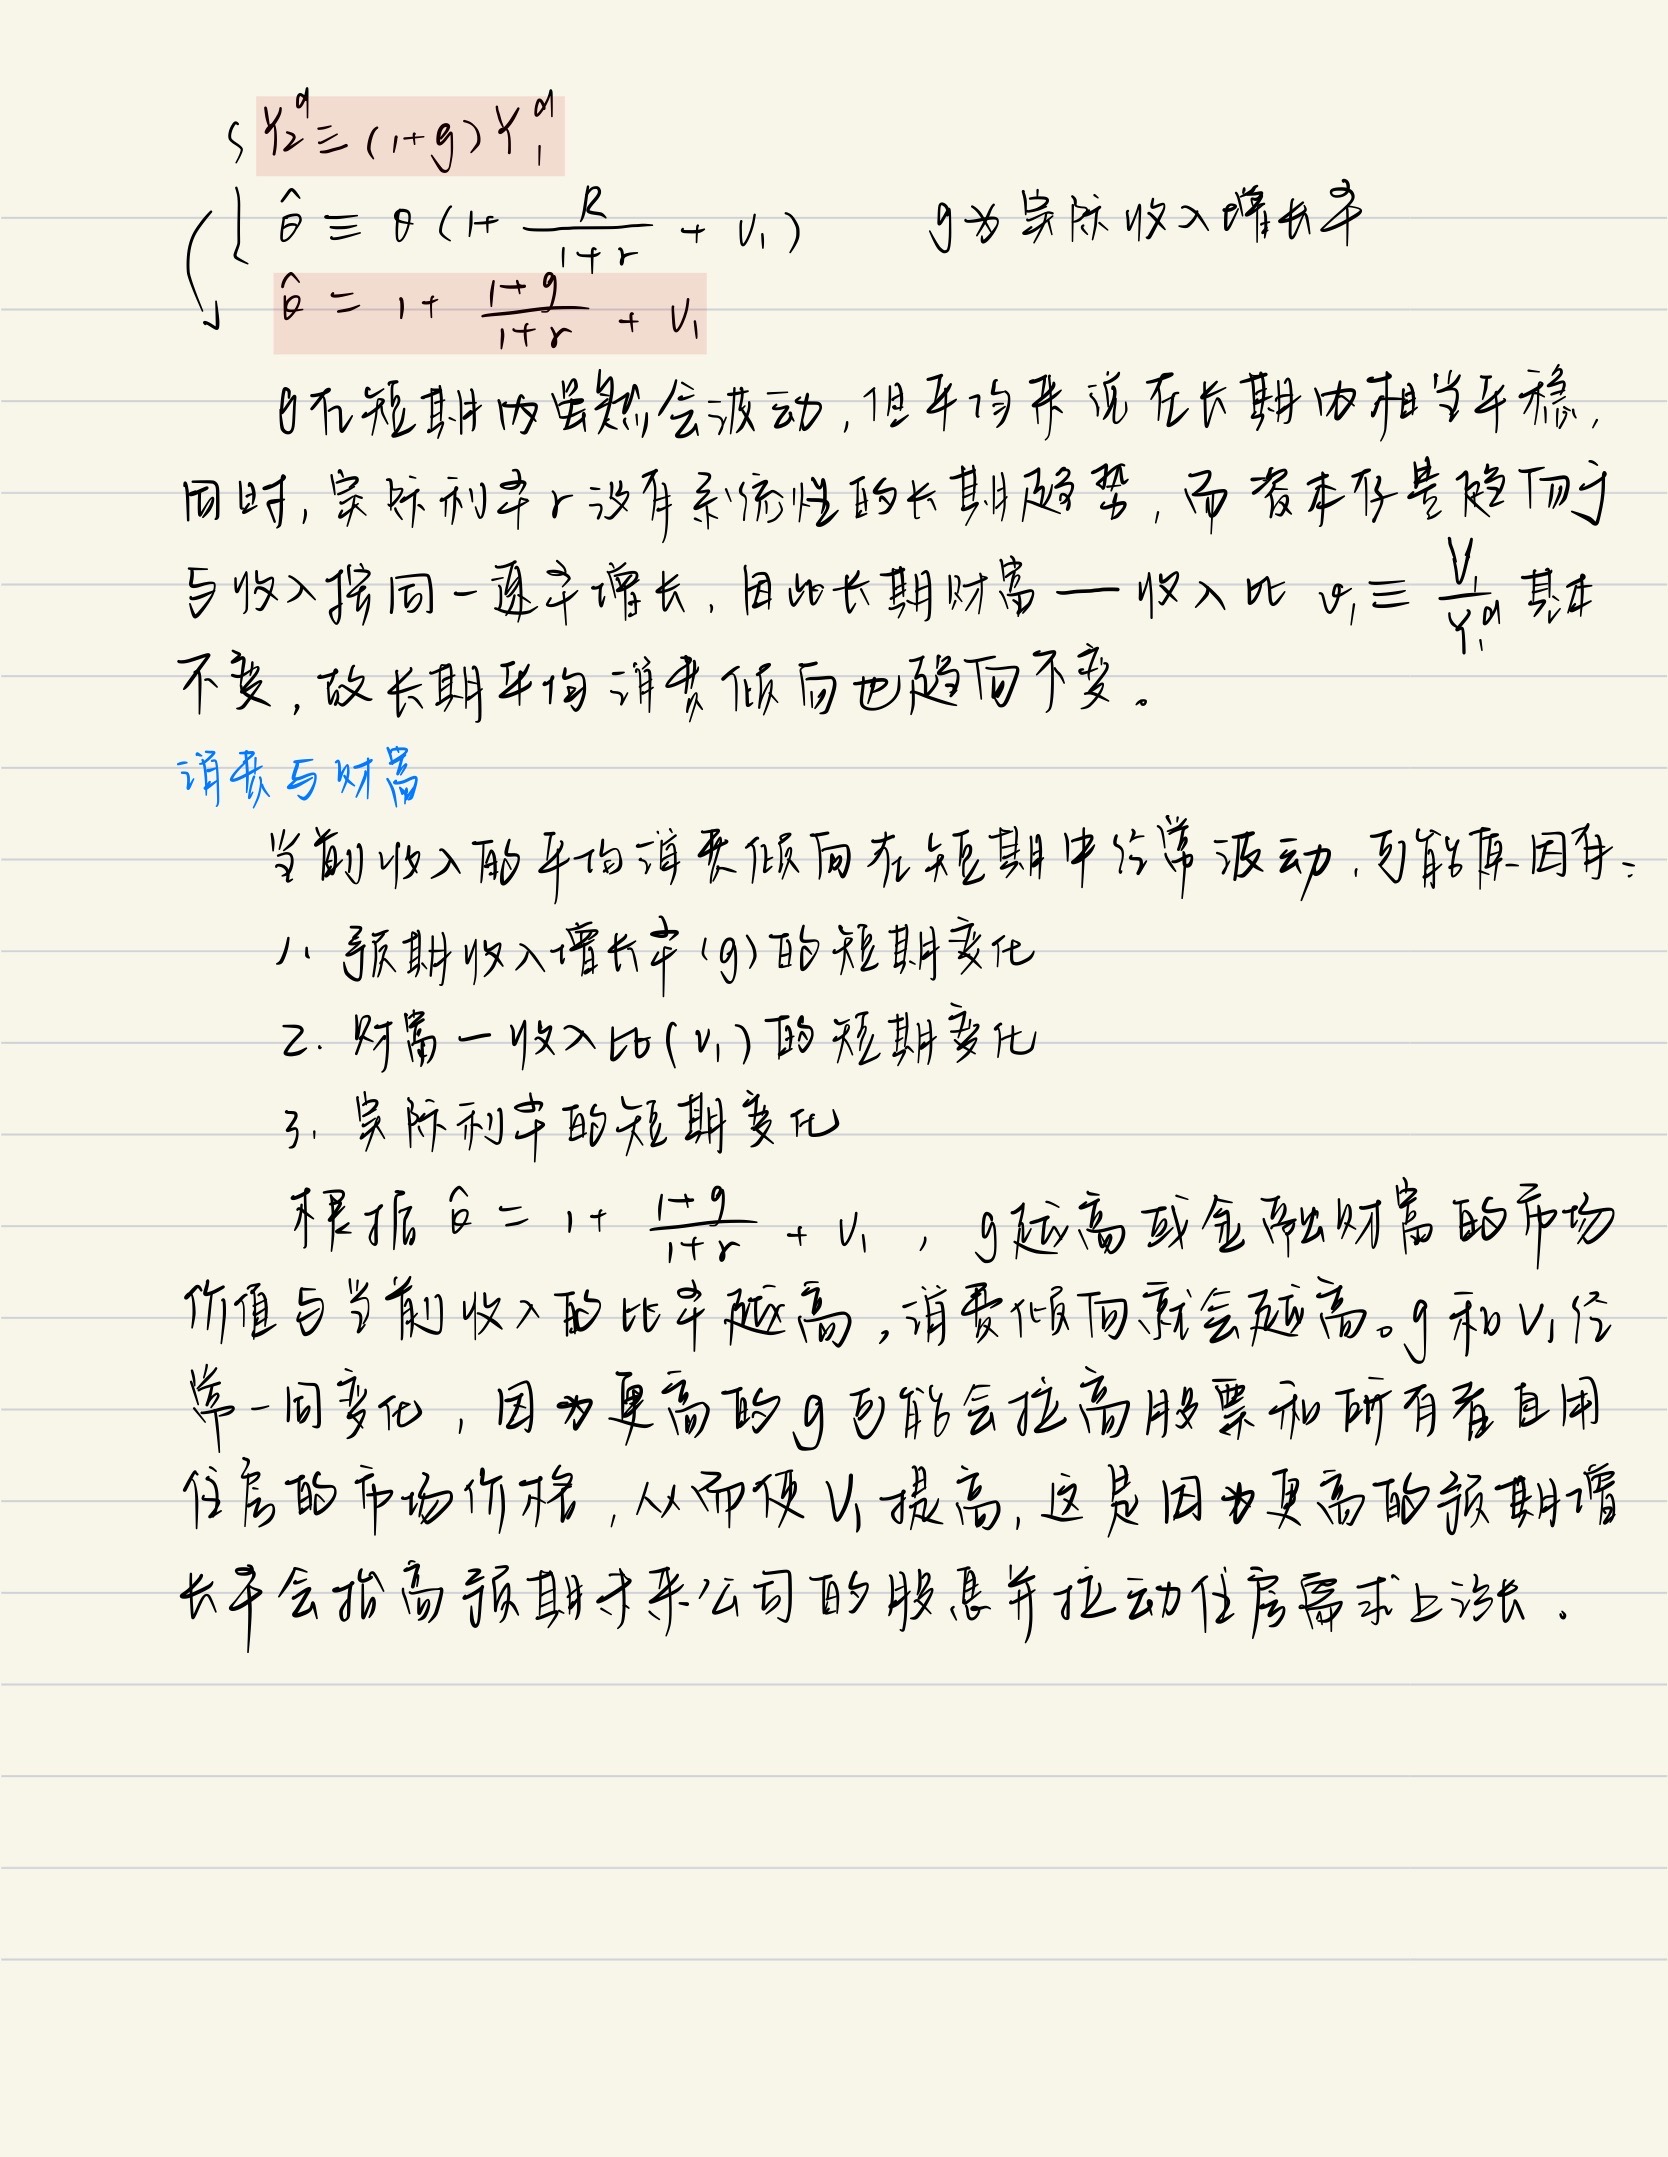 Y₂ᵈ ≡ (1+g) Y₁ᵈ
θ̂ ≡ θ (1+ R/(1+r) + V₁) g为实际收入增长率
θ̂ = 1+ (1+g)/(1+r) + V₁
θ在短期内虽然会波动,但平均来说在长期内相当平稳,
同时,实际利率r没有系统性的长期趋势,而资本存量趋向于
与收入按同一速率增长,因此长期财富—收入比 v₁≡ V₁/Y₁ᵈ 基本
不变,故长期平均消费倾向也趋向不变。
消费与财富
当前收入的平均消费倾向在短期中经常波动,可能原因有:
1. 预期收入增长率(g)的短期变化
2. 财富—收入比(v₁)的短期变化
3. 实际利率的短期变化
根据 θ̂ = 1+ (1+g)/(1+r) + V₁ , g越高或金融财富的市场
价值与当前收入的比率越高,消费倾向就会越高。g和V₁经
常一同变化,因为更高的g可能会拉高股票和所有者自用
住房的市场价格,从而使V₁提高,这是因为更高的预期增
长率会抬高预期未来公司的股息并拉动住房需求上涨。